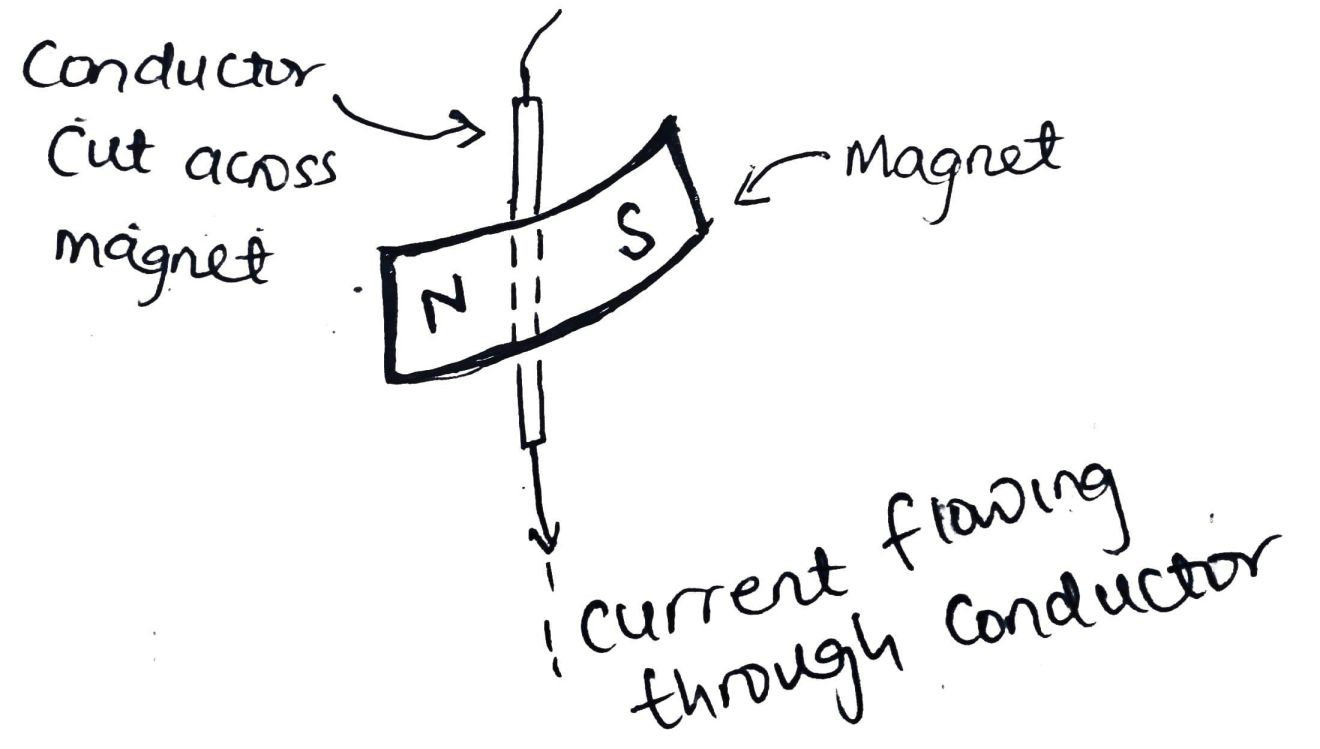 Conductor
Cut across
magnet
Magnet
N
S
current flowing
through conductor